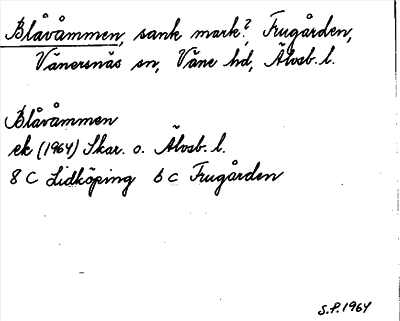 Blåvåmmen, sank mark?, Frugården,
Vänersnäs sn, Väne hd, Älvsb. l.
Blåvåmmen
ek (1964) Skar. o. Älvsb. l.
8 C Lidköping 6 c Frugården
S.P. 1964